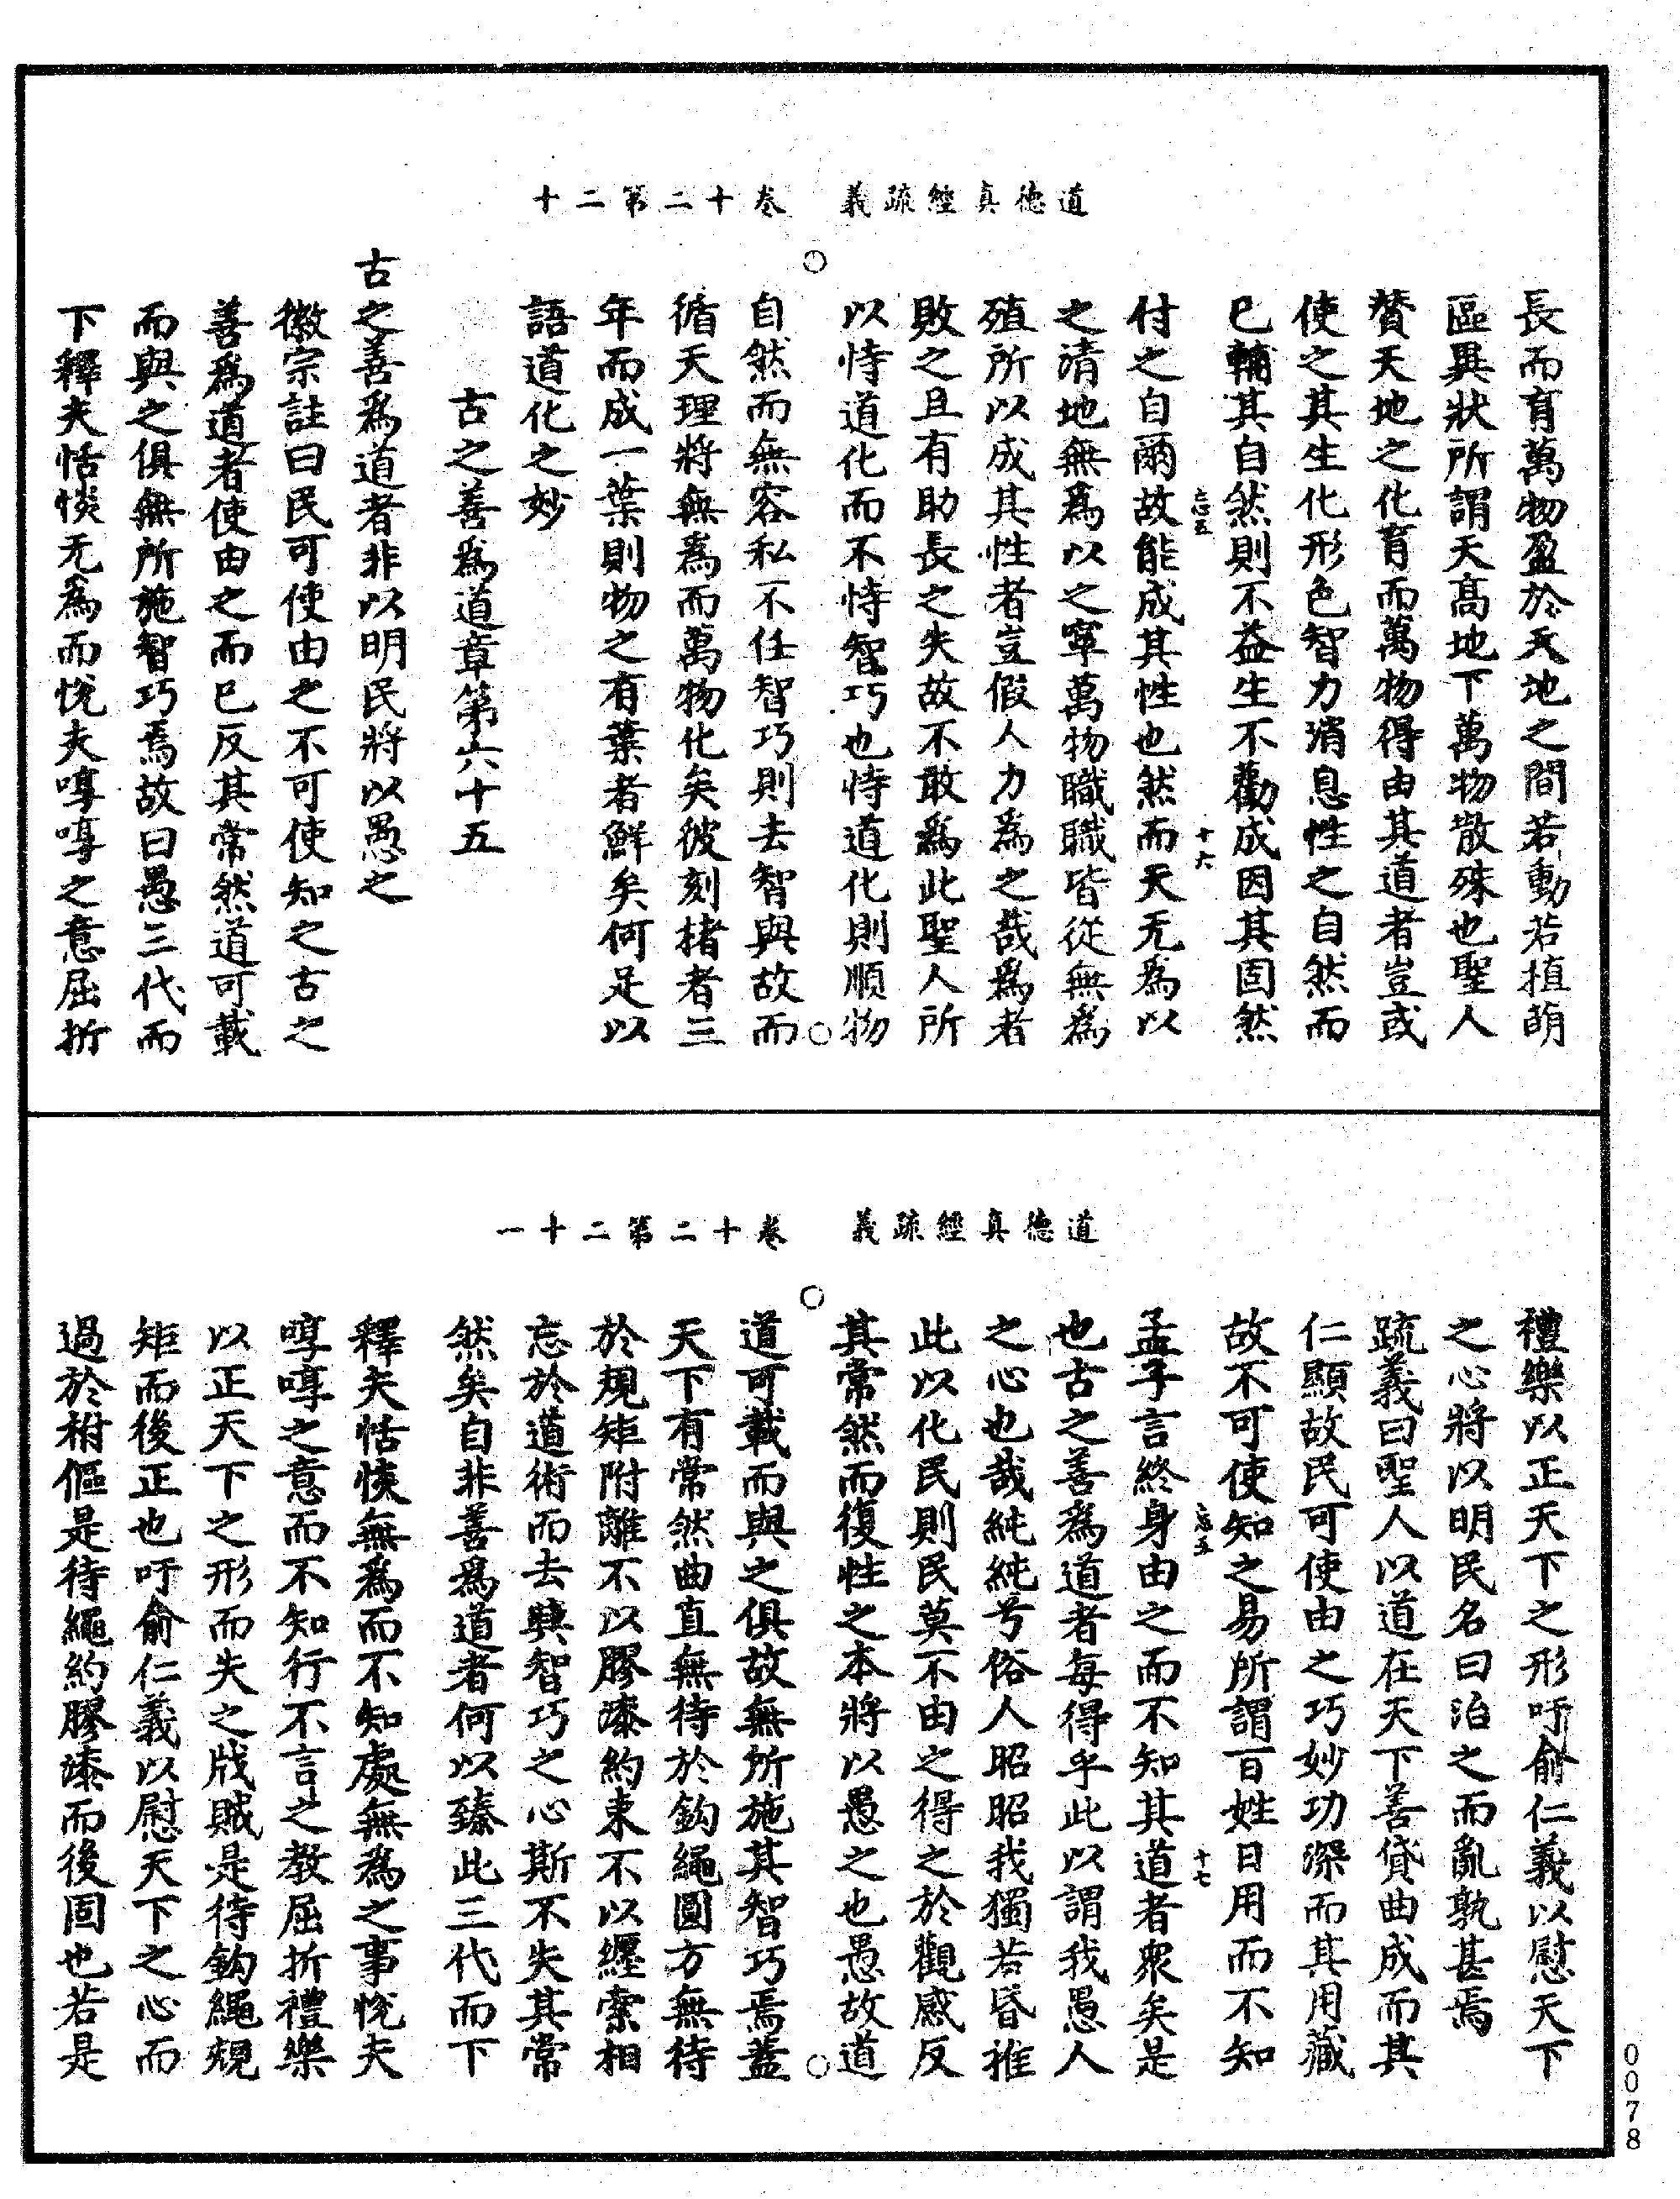 道德真經疏義　卷十二第二十
長而育萬物盈於天地之間若動若植萌
區異狀所謂天高地下萬物散殊也聖人
贊天地之化育而萬物得由其道者豈或
使之其生化形色智力消息性之自然而
已輔其自然則不益生不勸成因其固然
忘五　十六
付之自爾故能成其性也然而天无為以
之清地無為以之寧萬物職職皆從無為
殖所以成其性者豈假人力為之哉為者
敗之且有助長之失故不敢為此聖人所
以恃道化而不恃智巧也恃道化則順物
自然而無容私不任智巧則去智與故而
循天理將無為而萬物化矣彼刻楮者三
年而成一葉則物之有葉者鮮矣何足以
語道化之妙
古之善為道章第六十五
古之善為道者非以明民將以愚之
徽宗註曰民可使由之不可使知之古之
善為道者使由之而已反其常然道可載
而與之俱無所施智巧焉故曰愚三代而
下釋夫恬惔无為而悅夫啍啍之意屈折
道德真經疏義　卷十二第二十一
禮樂以正天下之形吁俞仁義以慰天下
之心將以明民名曰治之而亂孰甚焉
疏義曰聖人以道在天下善貸曲成而其
仁顯故民可使由之巧妙功深而其用藏
故不可使知之易所謂百姓日用而不知
忘五　十七
孟子言終身由之而不知其道者衆矣是
也古之善為道者每得乎此以謂我愚人
之心也哉純純兮俗人昭昭我獨若昏推
此以化民則民莫不由之得之於觀感反
其常然而復性之本將以愚之也愚故道
道可載而與之俱故無所施其智巧焉蓋
天下有常然曲直無待於鈎繩圓方無待
於規矩附離不以膠漆約束不以纆索相
忘於道術而去其智巧之心斯不失其常
然矣自非善為道者何以臻此三代而下
釋夫恬惔無為而不知處無為之事悅夫
啍啍之意而不知行不言之教屈折禮樂
以正天下之形而失之戕賊是待鈎繩規
矩而後正也吁俞仁義以慰天下之心而
過於柎傴是待繩約膠漆而後固也若是
0078